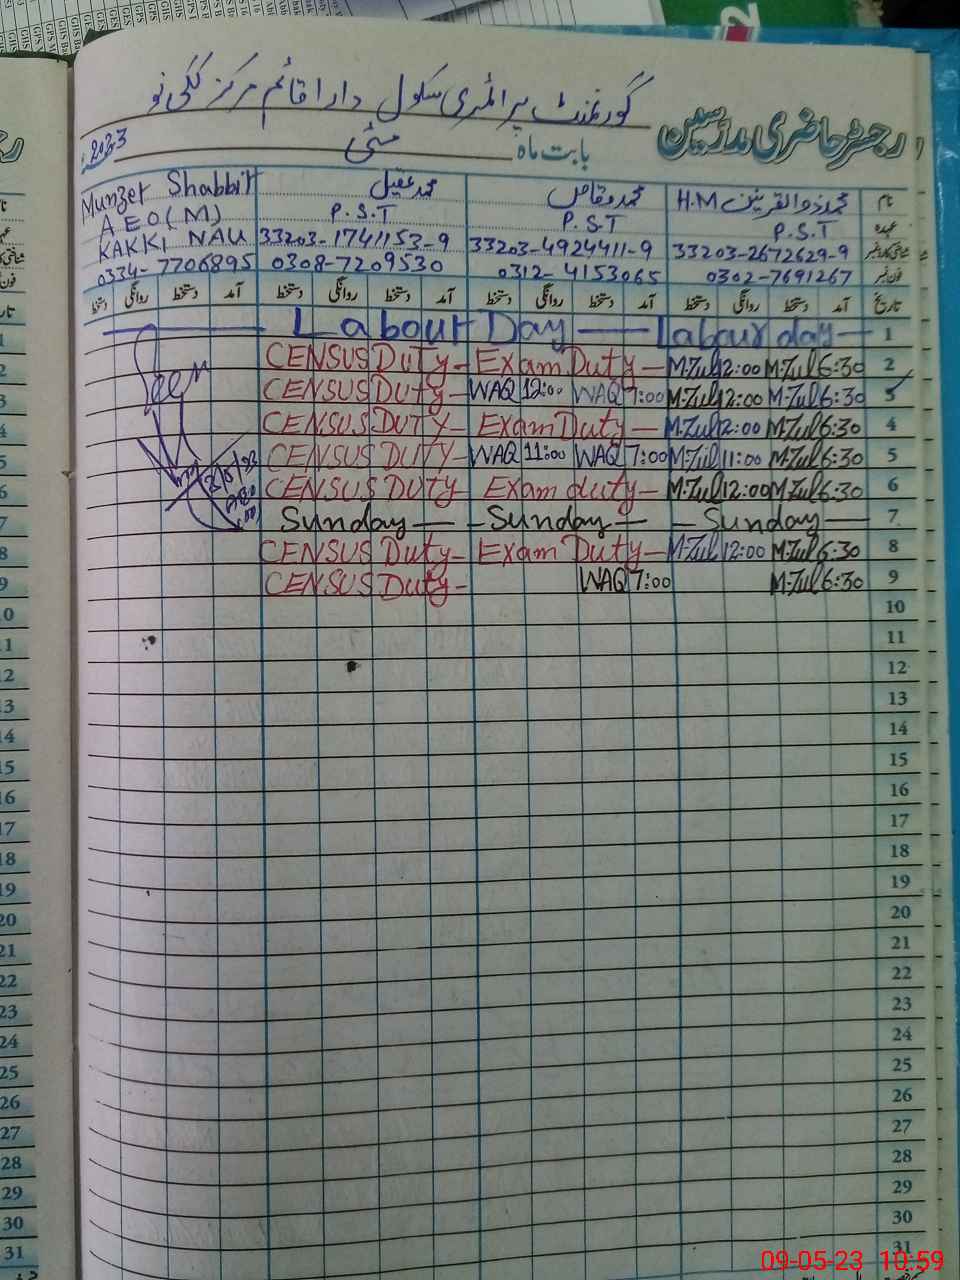 گورنمنٹ پرائمری سکول دارا قائم مرکز ککی نو
رجسٹر حاضری مدرسین
بابت ماہ مئی 2023
نام محمد ذوالقرنین H.M محمد وقاص محمد عقیل Munzer Shabbir
عہدہ P.S.T P.S.T P.S.T AEO(M)
شناختی کارڈ نمبر 33203-2672629-9 33203-4924411-9 33203-1741153-9 KAKKI NAU
فون نمبر 0302-7691267 0312-4153065 0308-7209530 0334-7706895
تاریخ آمد دستخط روانگی دستخط آمد دستخط روانگی دستخط آمد دستخط روانگی دستخط آمد دستخط روانگی دستخط
Labour Day — Labour day — 1
CENSUS Duty - Exam Duty - M.Zul 12:00 M.Zul 6:30 2
CENSUS Duty - WAQ 12:00 WAQ 7:00 M.Zul 12:00 M.Zul 6:30 3
CENSUS DUTY - Exam Duty - M.Zul 12:00 M.Zul 6:30 4
CENSUS DUTY - WAQ 11:00 WAQ 7:00 M.Zul 11:00 M.Zul 6:30 5
CENSUS DUTY Exam duty - M.Zul 12:00 M.Zul 6:30 6
Sunday — - Sunday — - Sunday — 7
CENSUS Duty - Exam Duty - M.Zul 12:00 M.Zul 6:30 8
CENSUS Duty - WAQ 7:00 M.Zul 6:30 9
Seen
10
11
12
13
14
15
16
17
18
19
20
21
22
23
24
25
26
27
28
29
30
31
09-05-23 10:59